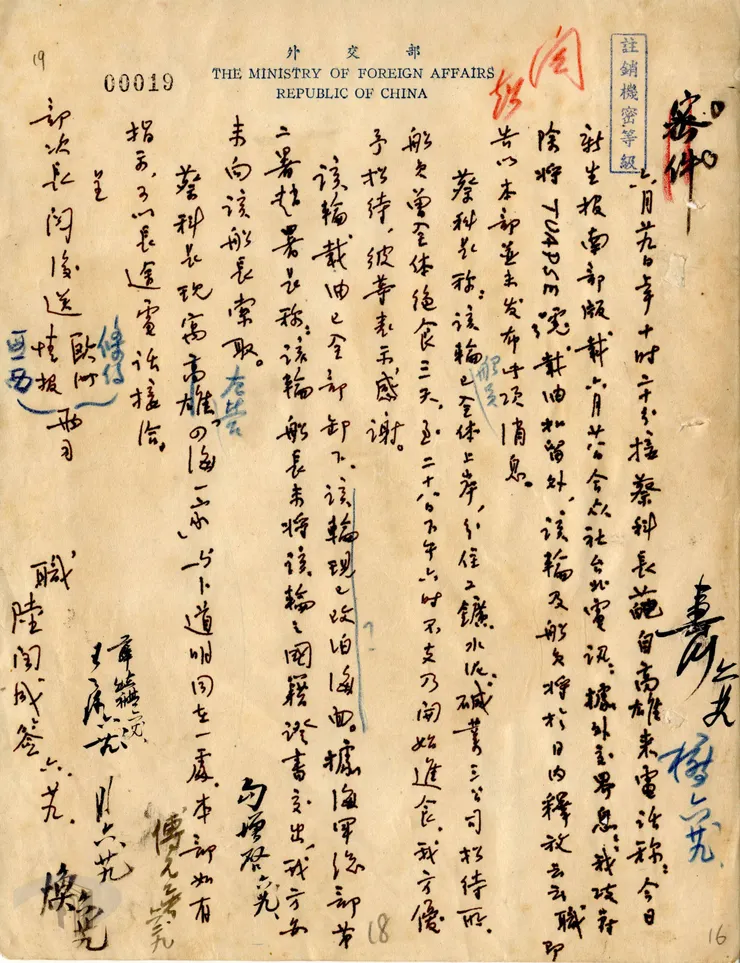 外交部
THE MINISTRY OF FOREIGN AFFAIRS
REPUBLIC OF CHINA
00019
19
註銷機密等級
閱
密件
六月廿九日上午十時二十分接蔡科長自高雄來電話稱：今日
新生報南部版載六月廿八合众社台北電訊：據外交界息：我政府
除將TUAPSE號載油扣留外，該輪及船員將於日內釋放云云職即
告以本部並未发布此項消息。
蔡科長称：該輪船員已全体上岸，分住工鑛、水泥、碱業三公司招待所。
船員曾全体絕食三天，至二十八日下午六時不支乃開始進食。我方優
予招待，彼等表示感謝。
該輪載油已全部卸下，該輪現已改泊海面。據海軍总部第
二署趙署長称：該輪船長未將該輪之國籍證書交出，我方亦
未向該船長索取。
蔡科長現寓高雄「四海一家」与卜道明同在一處。本部如有
指示，可以長途電話接洽。
呈
部次長閱後送
歐洲
情報
兩司
條約
職
陸閏成簽 六、廿九、
六廿九
18
16